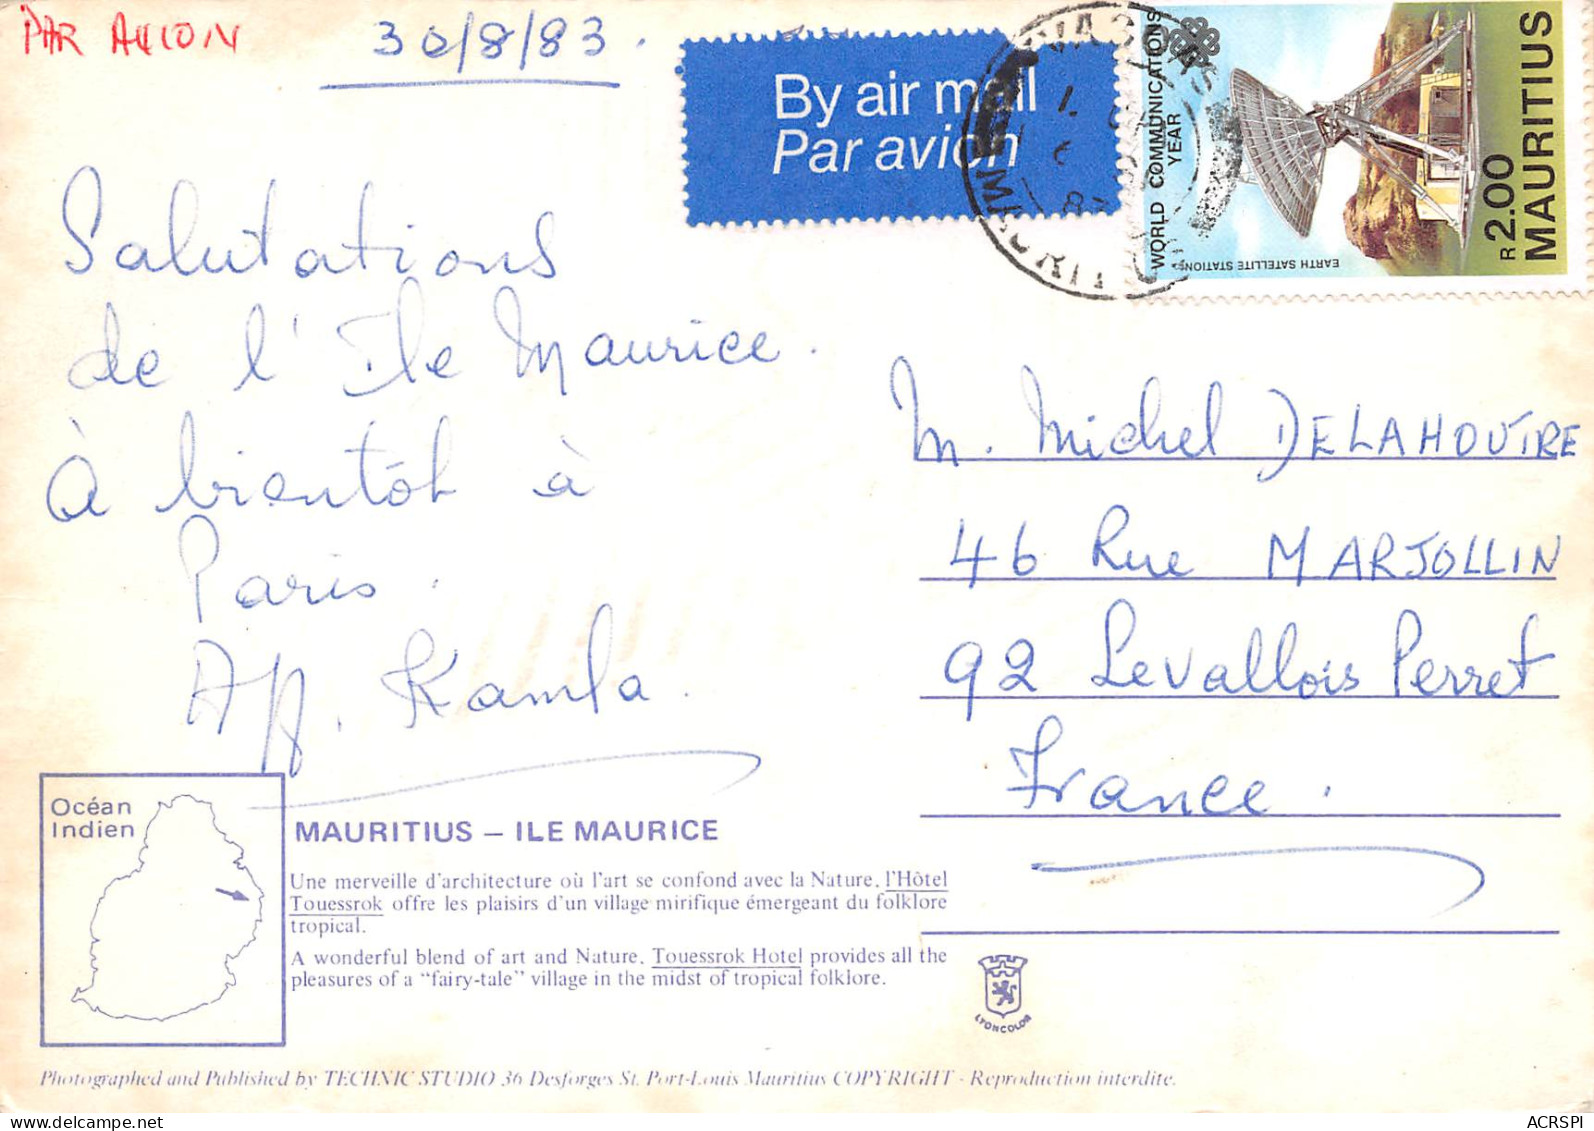 PAR AVION
30/8/83.
By air mail
Par avion
WORLD COMMUNICATIONS
YEAR
EARTH SATELLITE STATIONS
R 2.00
MAURITIUS
Salutations
de l'Ile Maurice.
à bientôt à
Paris.
Kamla.
M. Michel DELAHOUTRE
46 Rue MARJOLLIN
92 Levallois Perret
France.
Océan
Indien
MAURITIUS – ILE MAURICE
Une merveille d'architecture où l'art se confond avec la Nature, l'Hôtel
Touessrok offre les plaisirs d'un village mirifique émergeant du folklore
tropical.
A wonderful blend of art and Nature, Touessrok Hotel provides all the
pleasures of a “fairy-tale” village in the midst of tropical folklore.
LYONCOLOR
Photographed and Published by TECHNIC STUDIO 36 Desforges St. Port-Louis Mauritius COPYRIGHT - Reproduction interdite.
delcampe.net
ACRSPI